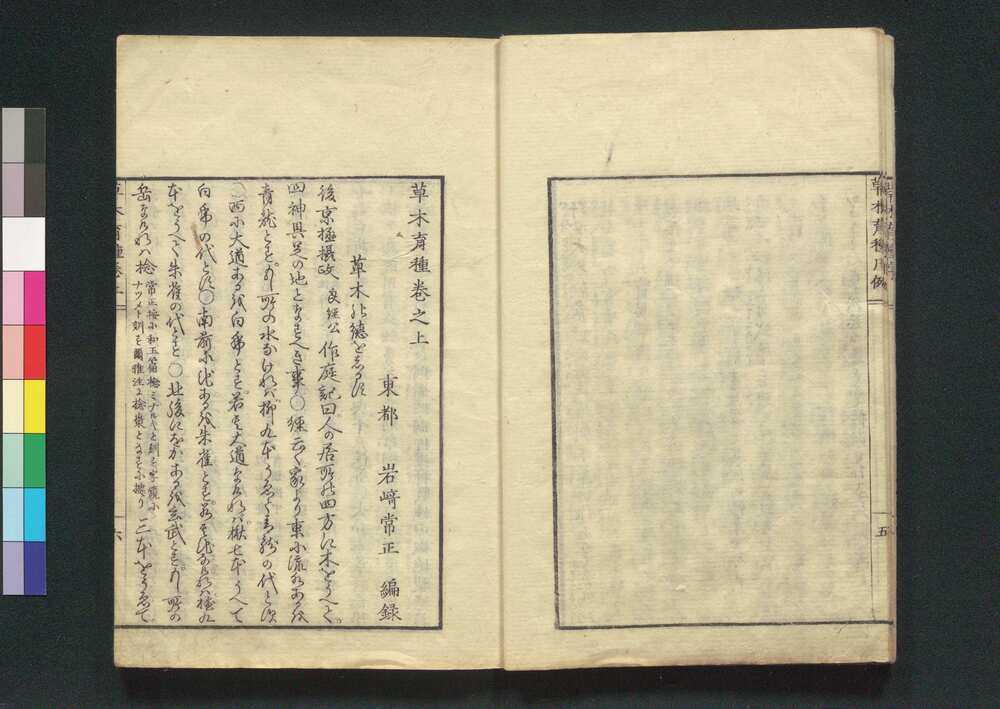 草木育種凡例
五
草木育種巻之上
東都 岩﨑常正 編録
草木の徳をしるす
後京極摂政 良経公 作庭記曰人の居所の四方に木をうへて
四神具足の地となすべき事○経云家より東に流水あるを
青龍とす若所の水なければ柳九本うゑて青龍の代とす
○西に大道あるを白虎とす若其大道なければ楸七本うへて
白虎の代とす○南前に池あるを朱雀とす若其池なければ桂九
本をうへて朱雀の代とす○北後にをかあるを玄武とす若所の
岳なければ桧
常正按に和玉篇桧ミナルヘと訓す字鏡に
ナツメト訓す爾雅注に
三本をうゑて
草木育種巻上
六